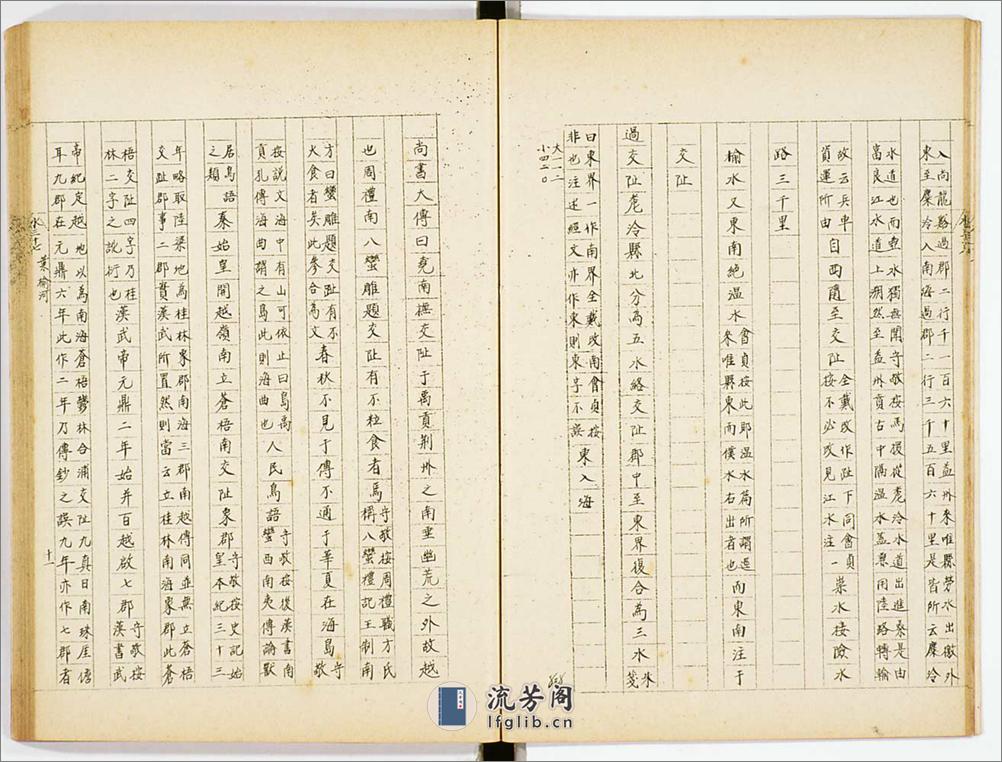 入尚龍谿過郡二行千一百六十里益州來唯縣勞水出徼外
東至麋泠入南海過郡二行三千五百六十里是皆所云麋泠
水道也而壺水獨無聞守敬按馬援從麊泠水道出進桑是由
富良江水道上溯然至益州賁古中隔溫水葢兼用陸路轉輸
故云兵車
資運所由
自西隨至交阯
全戴改作阯下同會貞
按不必改見江水注一
崇水接險水
路三千里
榆水又東南絕溫水
會貞按此即溫水篇所謂逕
來唯縣東而僕水右出者也
而東南注于
交阯
過交阯麊泠縣北分為五水絡交阯郡中至東界復合為三水
朱
箋
曰東界一作南界全戴改南會貞按
非也注述經文亦作東則東字不誤
東入海
大一一二
小四二〇
尚書大傳曰堯南撫交阯于禹貢荊州之南垂幽荒之外故越
也周禮南八蠻雕題交阯有不粒食者焉
守敬按周禮職方氏
稱八蠻禮記王制南
方曰蠻雕題交阯有不
火食者矣此參合為文
春秋不見于傳不通于華夏在海島
守
敬
按說文海中有山可依止曰島禹
貢孔傳海曲謂之島此則海曲也
人民鳥語
守敬按後漢書南
蠻西南夷傳論獸
居鳥語
之類
秦始皇開越嶺南立蒼梧南交阯象郡
守敬按史記始
皇本紀三十三
年略取陸梁地為桂林象郡南海三郡南越傳同並無立蒼梧
交阯郡事二郡實漢武所置然則當云立桂林南海象郡此蒼
梧交阯四字乃桂
林二字之訛衍也
漢武帝元鼎二年始并百越啟七郡
守敬按
漢書武
帝紀定越地以為南海蒼梧鬱林合浦交阯九真日南珠厓儋
耳九郡在元鼎六年此作二年乃傳鈔之誤九年亦作七郡者
葉榆河
十一
流芳阁
lfglib.cn